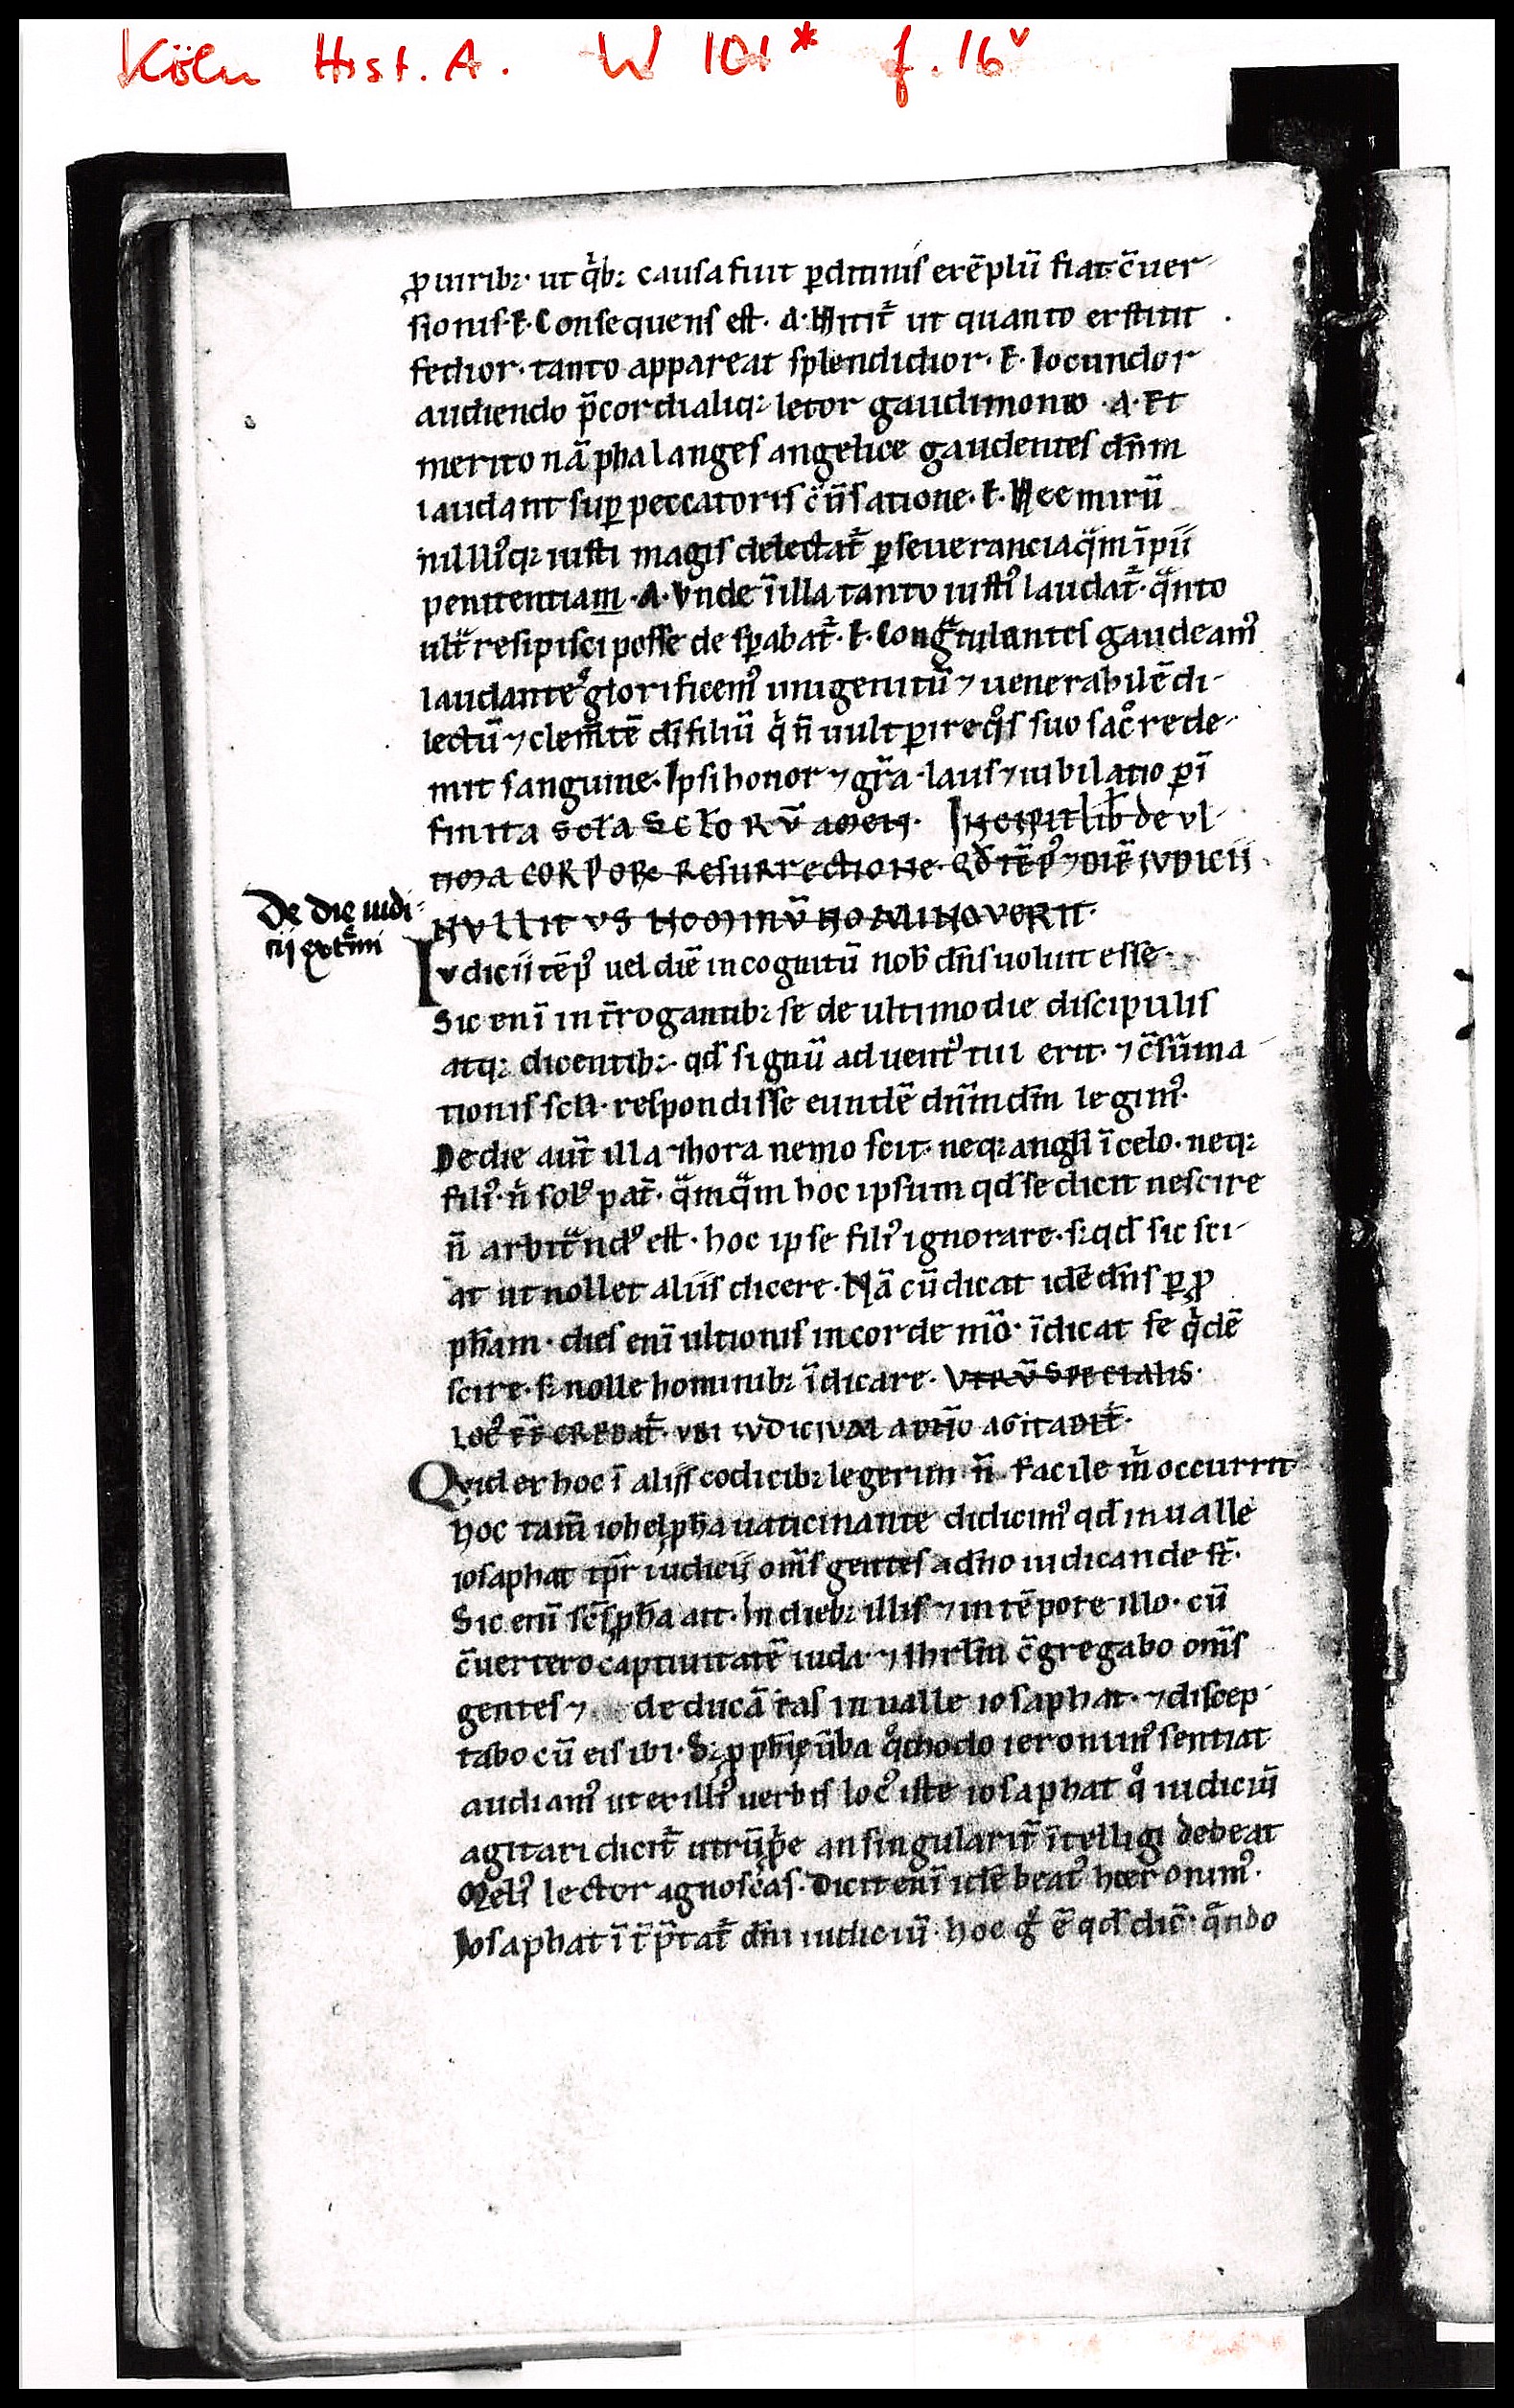 Köln Hist. A. W 101* f. 16v
ꝓ uirib; ut qͥb; causa fuit ꝑditinis exẽplũ fiat c̃uer-
sionis. E. Consequens est. A. Nitit᷑ ut quanto extitit
fedior. tanto appareat splendidior. E. Iocundor
audiendo p̃cordialiq; letor gaudimonio. A. Et
merito nã phalanges angelice gaudentes dñm
laudant suꝑ peccatoris c̃ũsatione. E. Nec mirũ
nulliꝰq; iusti magis delectat᷑ ꝑseuerancia qᷓm ĩpii
penitentiam. A. Vnde ĩ illa tanto iustiꝰ laudat᷑. qᷓnto
ult̾ resipisci posse desꝑabat᷑. E. Congᷓtulantes gaudeamꝰ
laudantes glorificemꝰ unigenitũ ⁊ uenerabilẽ di-
lectũ ⁊ clem̃tẽ di filiũ qͥ ñ uult ꝑire qͦs suo sac̊ rede-
mit sanguine. Ipsi honor ⁊ gr̃a. laus ⁊ iubilatio ꝑ ĩ
finita scl̃a scl̃oRũ amen. Incipit lib̃ de vl-
tima coRpoRe ResuRRectione. Qd̃ tẽpꝰ ⁊ diẽ ivdicii
nvllit vs hominũ homini noveRit.
De die iudi-
cij extᷓmi
Ivdicii tẽpꝰ uel diẽ incognitũ nob̃ dñs uoluit esse.
Sic enĩ int̃rogantib; se de ultimo die discipulis
atq; dicentib; qd̃ signũ aduentꝰ tui erit. ⁊ c̃sũma-
tionis scl̃i. respondisse eundẽ dñm dm̃ legimꝰ.
De die aut̃ illa ⁊ hora nemo scit. neq; angl̃i ĩ celo. neq;
filiꝰ. ñ solꝰ pat᷑. qᷓmqᷓm hoc ipsum qd̃ se dicit nescire
ñ arbitᷓndꝰ est. hoc ipse filiꝰ ignorare. s; qd̃ sic sci-
at ut nollet aliis dicere. Nã cũ dicat idẽ dñs ꝑ ꝓ
ph̃am. dies enĩ ultionis in corde mõ. ĩdicat se qͥdẽ
scire. s; nolle hominib; ĩdicare. VtRũ specialis
locꝰ eẽ cRedat᷑. vbi ivdicivm a dño agitabit᷑.
Quid ex hoc ĩ aliis codicib; legerim ñ facile m̃ occurrit
hoc tam̃ iohel ꝓph̃a uaticinante didicimꝰ qd̃ in ualle
iosaphat tpr̃ iudicij oms̃ gentes a dño iudicande st̃.
Sic enĩ sc̃s ꝓph̃a ait. In dieb; illis ⁊ in tẽpore illo. cũ
c̃uertero captiuitatẽ iuda. ⁊ ihrl̃m c̃gregabo oms̃
gentes ⁊ deducã eas in ualle iosaphat. ⁊ discep-
tabo cũ eis ibi. S; ꝓph̃ie ũba qͦmodo ieronimꝰ sentiat
audiamꝰ ut ex illiꝰ uerbis locꝰ iste iosaphat qͦ iudiciũ
agitari dicit᷑ utrũ an singularit̃ ĩtelligi debeat
Meliꝰ lector agnoscas. Dicit enĩ idẽ beatꝰ hieronimꝰ.
Iosaphat ĩt̃p̃tat᷑ dñi iudiciũ. hoc gͦ ẽ qd̃ dic̃. qᷓndo